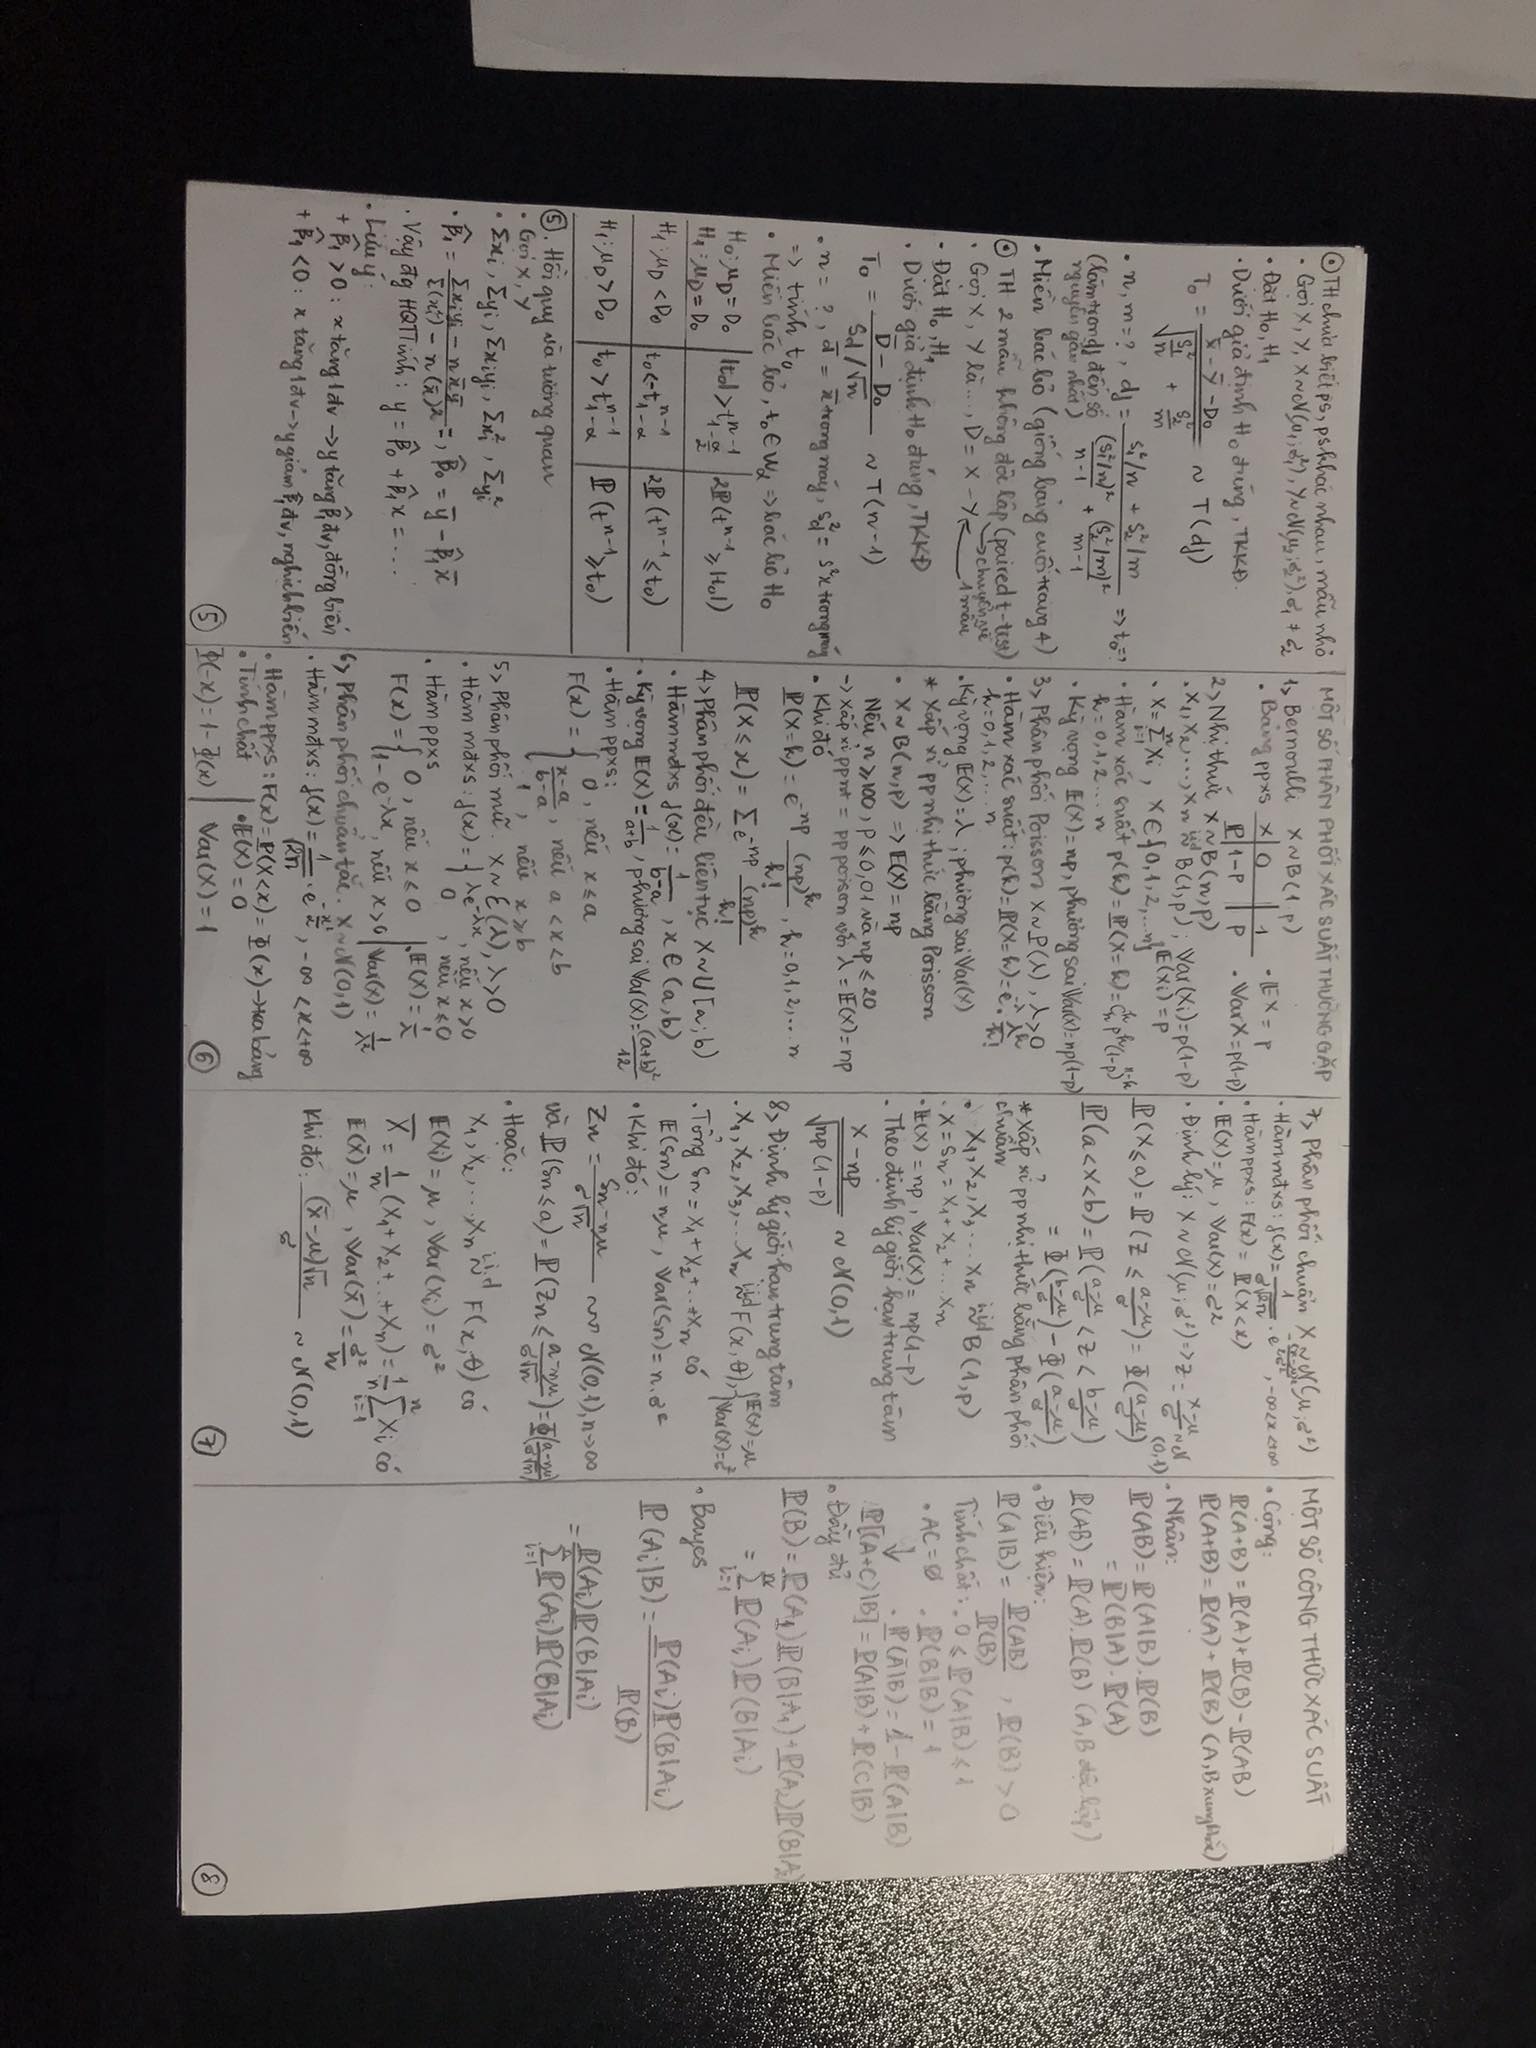 ⊙ TH chưa biết ps, ps khác nhau, mẫu nhỏ
• Gọi X, Y, X~N(μ1; σ1²), Y~N(μ2; σ2²), σ1 ≠ σ2
• Đặt H0, H1
• Dưới giả định H0 đúng, TKKĐ.
T0 = (x̄ - ȳ - D0) / √(s1²/n + s2²/m) ~ T(df)
• n, m = ?, df = (s1²/n + s2²/m) / ((s1²/n)²/(n-1) + (s2²/m)²/(m-1)) => t0 = ?
(làm tròn df đến số nguyên gần nhất)
• Miền bác bỏ (giống bảng cuối trang 4)
⊙ TH 2 mẫu không độc lập (paired t-test)
• Gọi X, Y là..., D = X - Y ↖ chuyển về 1 mẫu
• Đặt H0, H1
• Dưới giả định H0 đúng, TKKĐ
T0 = (D̄ - D0) / (Sd/√n) ~ T(n-1)
• n = ?, d̄ = x̄ trong máy, sd² = s²x trong máy
=> tính t0
• Miền bác bỏ, t0 ∈ Wα => bác bỏ H0
H0: μD = D0
H1: μD = D0 | |t0| > t^{n-1}_{1-α/2} | 2P(t^{n-1} ≥ |t0|)
H1: μD < D0 | t0 < -t^{n-1}_{1-α} | 2P(t^{n-1} ≤ t0)
H1: μD > D0 | t0 > t^{n-1}_{1-α} | P(t^{n-1} ≥ t0)
⑤. Hồi quy và tương quan
• Gọi X, Y
• Σxi, Σyi, Σxiyi, Σxi², Σyi²
• β̂1 = (Σxiyi - n x̄ȳ) / (Σ(xi²) - n(x̄)²) =, β̂0 = ȳ - β̂1x̄
• Vậy đg HQTTính: y = β̂0 + β̂1x = ...
• Lưu ý:
+ β̂1 > 0: x tăng 1 đv -> y tăng β̂1 đv, đồng biến
+ β̂1 < 0: x tăng 1 đv -> y giảm β̂1 đv, nghịch biến
⑤
MỘT SỐ PHÂN PHỐI XÁC SUẤT THƯỜNG GẶP
1> Bernoulli X~B(1, p)
• Bảng ppxs X | 0 | 1 • EX = p
P | 1-p | p • VarX = p(1-p)
2> Nhị thức X~B(n, p)
• X1, X2, ..., Xn iid~ B(1, p); Var(Xi) = p(1-p)
• X = Σ^n_{i=1} Xi, X ∈ {0, 1, 2, ... n} E(Xi) = p
• Hàm xác suất p(k) = P(X=k) = C^k_n p^k (1-p)^{n-k}
k = 0, 1, 2, ... n
• Kỳ vọng E(X) = np, phương sai Var(X) = np(1-p)
3> Phân phối Poisson X~P(λ), λ>0
• Hàm xác suất: p(k) = P(X=k) = e^{-λ}. λ^k/k!
k = 0, 1, 2, ... n
• Kỳ vọng E(X) = λ; phương sai Var(X)
* Xấp xỉ ppnhị thức bằng Poisson
• X~B(n, p) => E(X) = np
Nếu n ≥ 100, p ≤ 0,01 và np ≤ 20
-> Xấp xỉ ppnt = pp poison với λ = E(X) = np
• Khi đó
P(X=k) = e^{-np} (np)^k/k!, k = 0, 1, 2, ... n
P(X ≤ x) = Σ e^{-np} (np)^k/k!
4> Phân phối đều liên tục X~U[a; b)
• Hàm mđxs f(x) = 1/(b-a), x ∈ (a, b)
• Kỳ vọng E(X) = 1/(a+b), phương sai Var(X) = (a+b)²/12
• Hàm ppxs:
F(x) = { 0, nếu x ≤ a
(x-a)/(b-a), nếu a < x < b
1, nếu x ≥ b
5> Phân phối mũ. X~ξ(λ), λ>0
• Hàm mđxs: f(x) = { λe^{-λx}, nếu x>0
0, nếu x ≤ 0
• Hàm ppxs
F(x) = { 0, nếu x ≤ 0 | • E(X) = 1/λ
1 - e^{-λx}, nếu x>0 | Var(X) = 1/λ²
6> Phân phối chuẩn tắc. X~N(0, 1)
• Hàm mđxs: f(x) = 1/√2π . e^{-x²/2}, -∞ < x < +∞
• Hàm ppxs: F(x) = P(X<x) = Φ(x) -> tra bảng
• Tính chất | • E(X) = 0
Φ(-x) = 1 - Φ(x) | Var(X) = 1
⑥
7> Phân phối chuẩn X~N(μ; σ²)
• Hàm mđxs: f(x) = 1/σ√2π . e^{-(x-μ)²/2σ²}, -∞<x<+∞
• Hàm ppxs: F(x) = P(X<x)
• E(X) = μ, Var(X) = σ²
• Định lý: X~N(μ; σ²) => Z = (X-μ)/σ ~N(0,1)
P(X ≤ a) = P(Z ≤ (a-μ)/σ) = Φ((a-μ)/σ)
P(a<X<b) = P((a-μ)/σ < Z < (b-μ)/σ)
= Φ((b-μ)/σ) - Φ((a-μ)/σ)
* Xấp xỉ pp nhị thức bằng phân phối chuẩn
• X1, X2, X3, ... Xn iid~ B(1, p)
• X = Sn = X1 + X2 + ... Xn
• E(X) = np, Var(X) = np(1-p)
• Theo định lý giới hạn trung tâm
(X - np)/√(np(1-p)) ~ N(0, 1)
8> Định lý giới hạn trung tâm
• X1, X2, X3, ... Xn iid~ F(x, θ), { E(X) = μ
Var(X) = σ²
• Tổng Sn = X1 + X2 + ... + Xn có
E(Sn) = nμ, Var(Sn) = n.σ²
• Khi đó:
Zn = (Sn - nμ)/σ√n ~ N(0, 1), n->∞
và P(Sn ≤ a) = P(Zn ≤ (a-nμ)/σ√n) = Φ((a-nμ)/σ√n)
• Hoặc:
X1, X2, ... Xn iid~ F(x, θ) có
E(Xi) = μ, Var(Xi) = σ²
X̄ = 1/n (X1 + X2 + ... + Xn) = 1/n Σ^n_{i=1} Xi có
E(X̄) = μ, Var(X̄) = σ²/n
Khi đó: (X̄ - μ)√n/σ ~ N(0, 1)
⑦
MỘT SỐ CÔNG THỨC XÁC SUẤT
• Cộng:
P(A+B) = P(A) + P(B) - P(AB)
P(A+B) = P(A) + P(B) (A, B xung khắc)
• Nhân:
P(AB) = P(A|B). P(B)
= P(B|A). P(A)
P(AB) = P(A). P(B) (A, B độc lập)
• Điều kiện:
P(A|B) = P(AB)/P(B), P(B) > 0
Tính chất: • 0 ≤ P(A|B) ≤ 1
• AC = Ø • P(B|B) = 1
↓ • P(Ā|B) = 1 - P(A|B)
P[(A+C)|B] = P(A|B) + P(C|B)
• Đầy đủ
P(B) = P(A1)P(B|A1) + P(A2)P(B|A2)
= Σ^n_{i=1} P(Ai)P(B|Ai)
• Bayes
P(Ai|B) = P(Ai)P(B|Ai)/P(B)
= P(Ai)P(B|Ai) / Σ^n_{i=1} P(Ai)P(B|Ai)
⑧